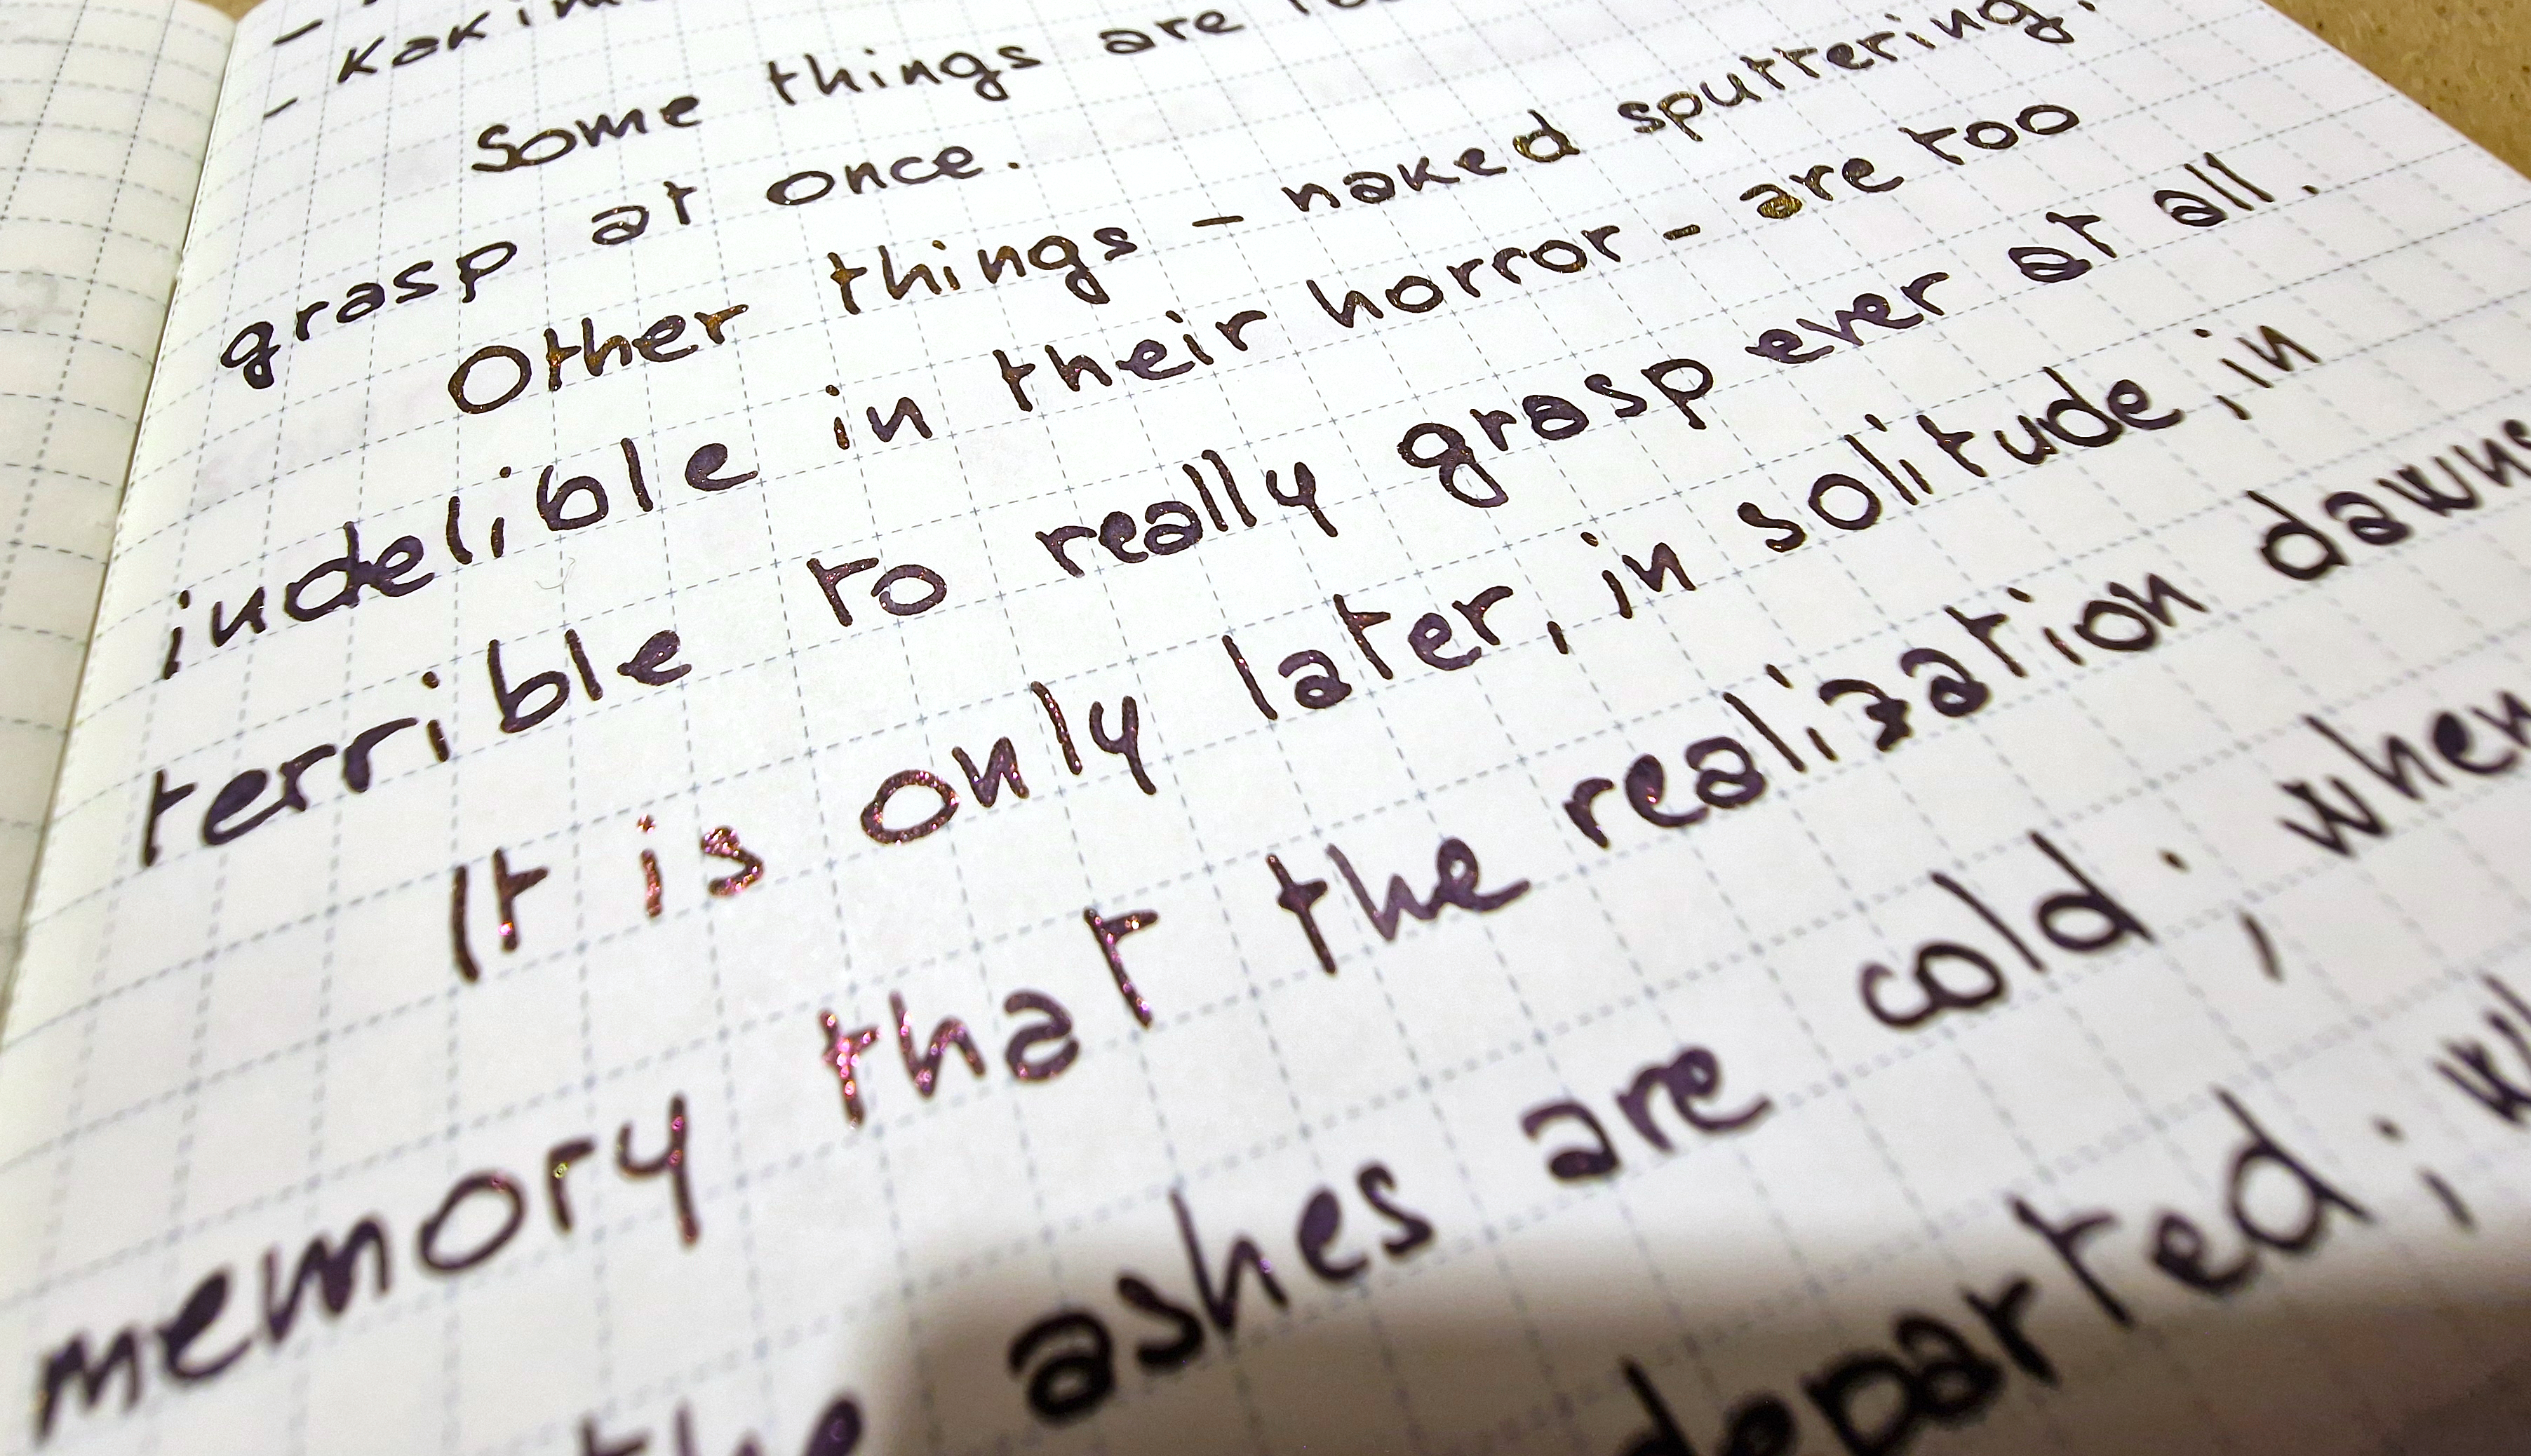 -
- Kakim
Some things are
grasp at once.
Other things - naked sputtering,
indelible in their horror - are too
terrible to really grasp ever at all.
It is only later, in solitude, in
memory that the realization dawns
the ashes are cold; when
departed;